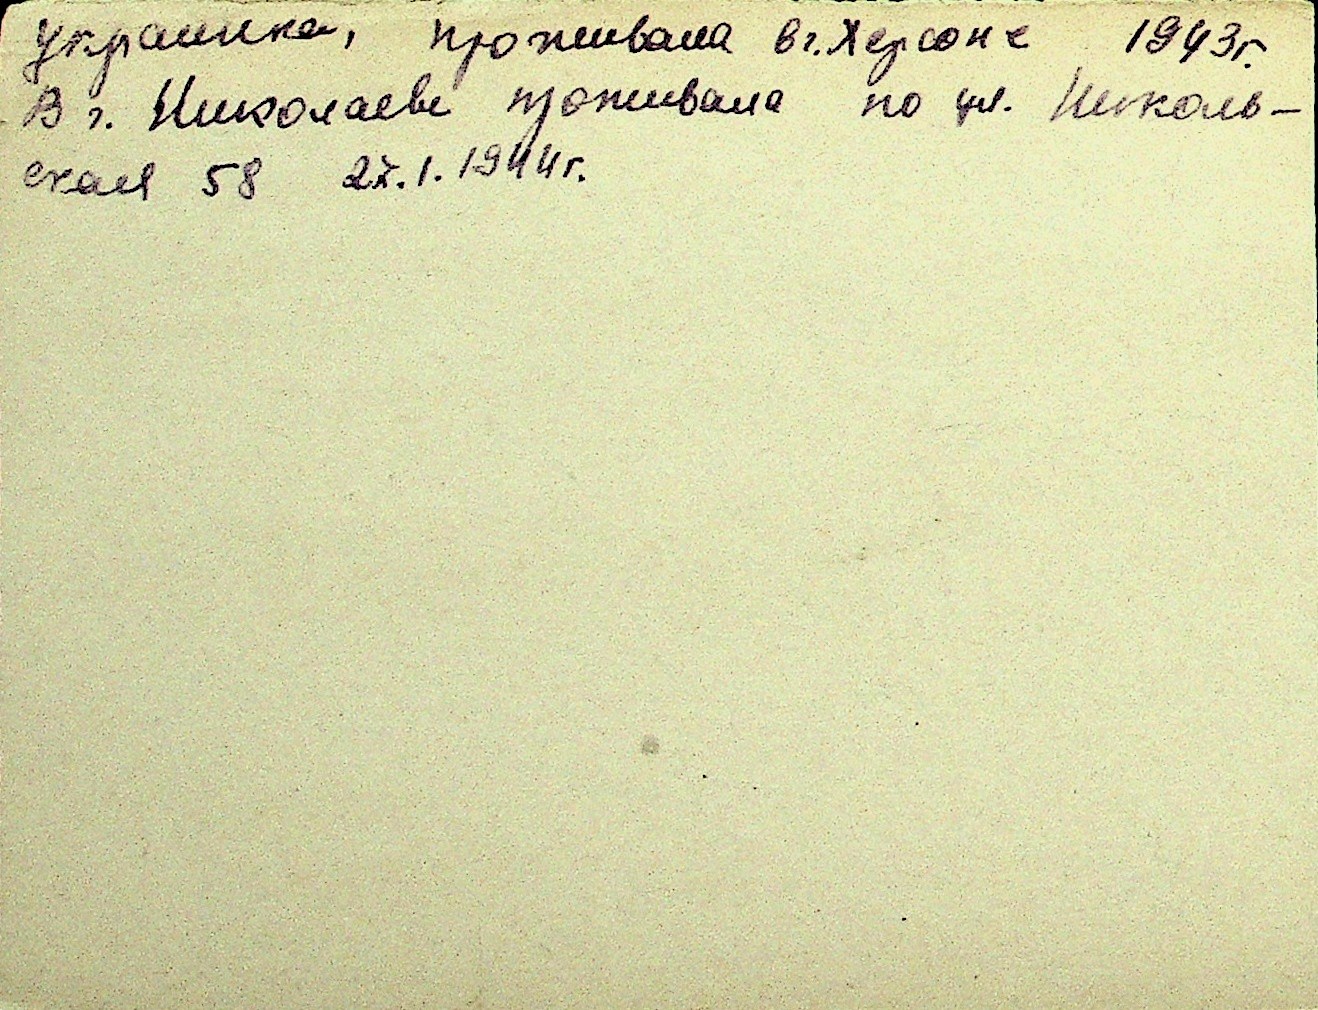 украинка, проживала в г. Херсоне 1943г.
В г. Николаеве проживала по ул. Николь-
ская 58 27.1.1944г.